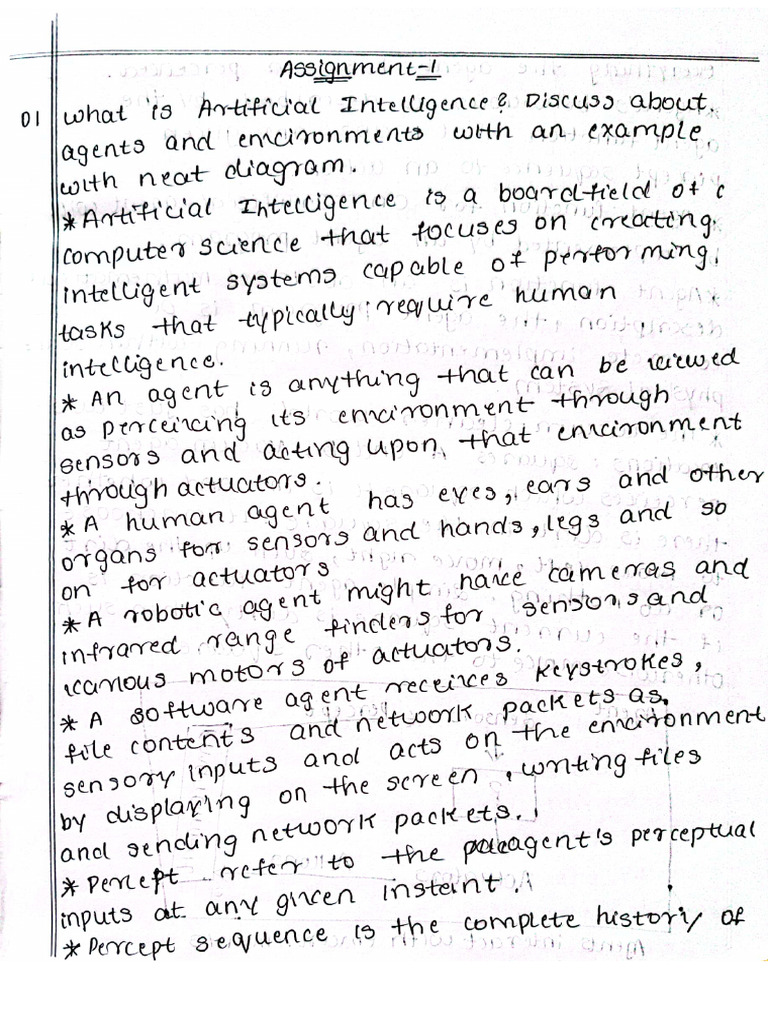 Assignment-1
01 What is Artificial Intelligence? Discuss about
agents and environments with an example
with neat diagram.
* Artificial Intelligence is a board field of c
computer science that focuses on creating
intelligent systems capable of performing
tasks that typically require human
intelligence.
* An agent is anything that can be viewed
as perceiving its environment through
sensors and acting upon that environment
through actuators.
* A human agent has eyes, ears and other
organs for sensors and hands, legs and so
on for actuators
* A robotic agent might have cameras and
infrared range finders for sensors and
various motors of actuators.
* A software agent receives keystrokes,
file contents and network packets as
sensory inputs and acts on the environment
by displaying on the screen, writing files
and sending network packets.
* Percept refer to the agent's perceptual
inputs at any given instant.
* Percept sequence is the complete history of